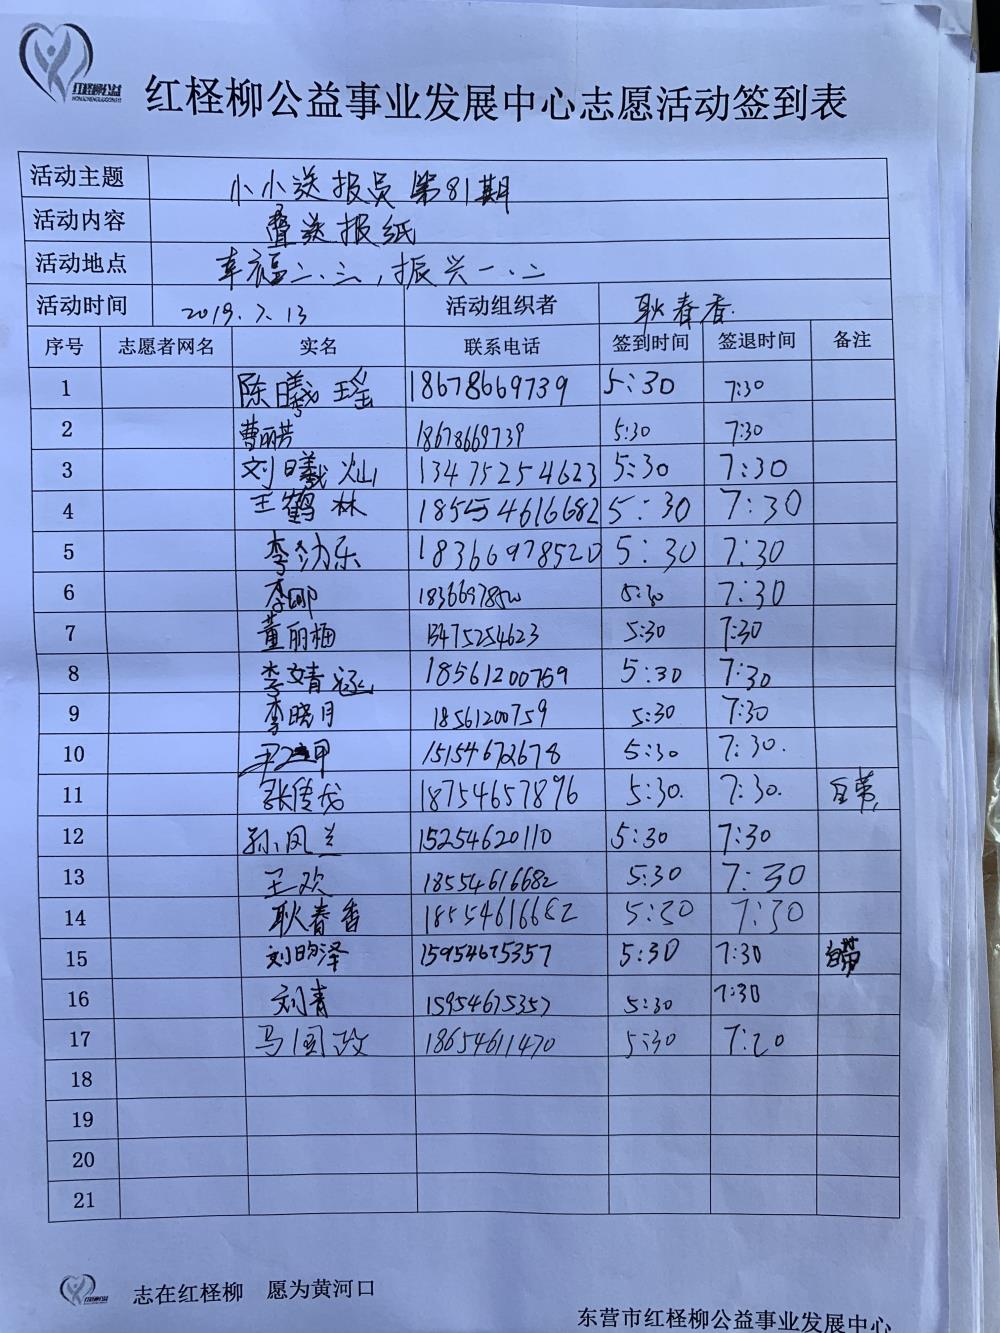 红柽柳公益
红柽柳公益事业发展中心志愿活动签到表
活动主题 小小送报员第81期
活动内容 叠送报纸
活动地点 幸福二、三,振兴一、二
活动时间 2019.7.13 活动组织者 耿春香
序号 志愿者网名 实名 联系电话 签到时间 签退时间 备注
1 陈曦瑶 18678669739 5:30 7:30
2 曹丽芳 18678669739 5:30 7:30
3 刘曦灿 13475254623 5:30 7:30
4 王鹤林 18554616682 5:30 7:30
5 李沩乐 18366978520 5:30 7:30
6 李娜 18366978520 5:30 7:30
7 董丽梅 13475254623 5:30 7:30
8 李婧涵 18561200759 5:30 7:30
9 李晓月 18561200759 5:30 7:30
10 15154672678 5:30 7:30.
11 张传龙 18754657896 5:30. 7:30. 自带
12 孙凤兰 15254620110 5:30 7:30
13 王欢 18554616682 5:30 7:30
14 耿春香 18554616682 5:30 7:30
15 刘昀泽 15954675357 5:30 7:30 自带
16 刘青 15954675357 5:30 7:30
17 马国政 18654611470 5:30 7:20
18
19
20
21
志在红柽柳 愿为黄河口
东营市红柽柳公益事业发展中心